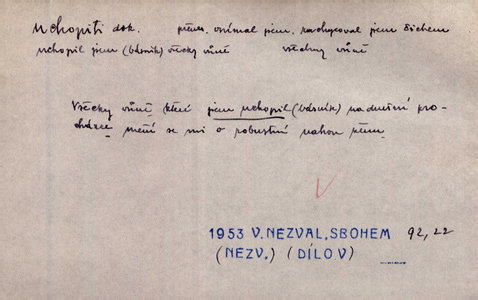 Uchopiti dok. přen. vnímal jsem, zachycoval jsem čichem
uchopil jsem (básník) všecky vůně všechny vůně
Všecky vůně, které jsem uchopil (básník) na dnešní pro-
cházce mění se mi v robustní nahou
1953 V. NEZVAL, SBOHEM 92, 22
(NEZV.) (DÍLO V)